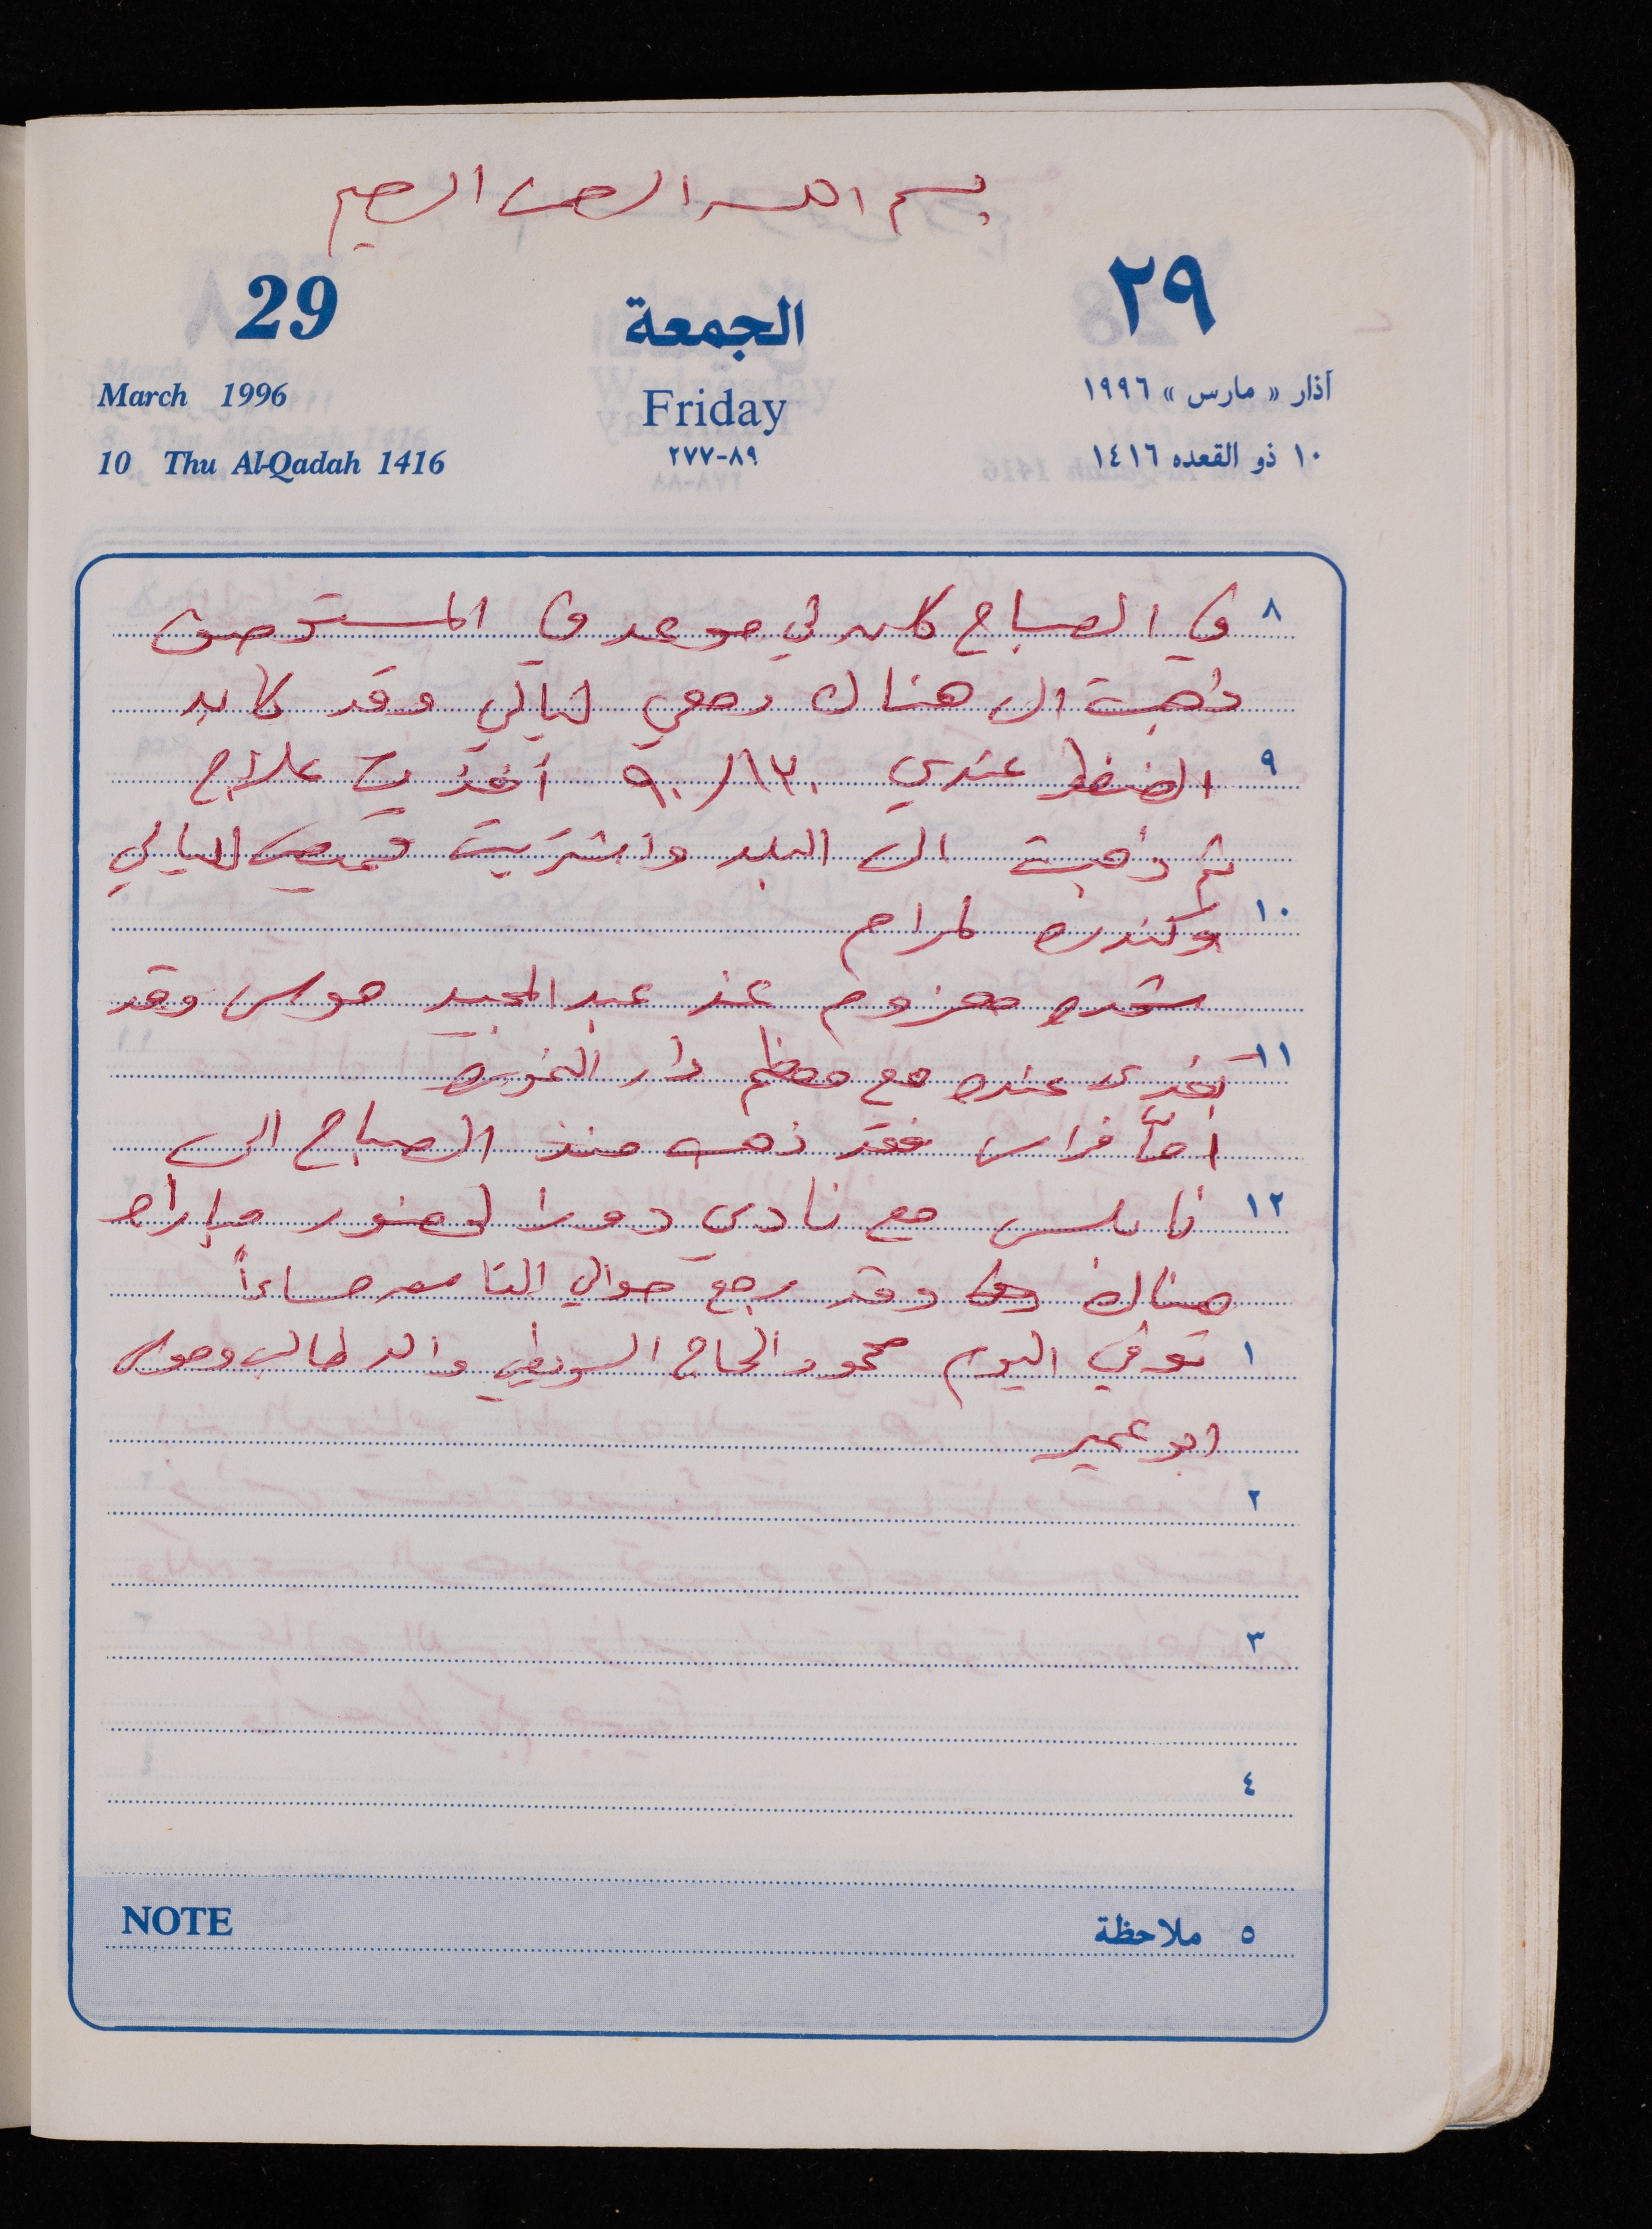 بسم الله الرحمن الرحيم
29 الجمعة ٢٩
March 1996 Friday آذار « مارس » ١٩٩٦
10 Thu Al-Qadah 1416 ٨٩-٢٧٧ ١٠ ذو القعده ١٤١٦
٨ في الصباح كان لي موعد في المستوصف
ذهبت الى هناك ومعي ليالي وقد كان
٩ الضغط عندي ١٣٠/٩٠ أخذت علاج
ثم ذهبت الى البلد واشتريت قميص لليالي
١٠ وكندره لمرام
معزوم عند عبد المجيد وقد
١١ تغدى عنده مع معظم دار
أمّا فراس فقد ذهب منذ الصباح الى
١٢ نابلس مع نادي دورا لحضور مباراه
هناك وقد رجع حوالي التاسعه مساءاً
١ توفي اليوم محمود الحاج السويطي والد طالب وموسى
ابو عمير
٢
٣
٤
NOTE ٥ ملاحظة